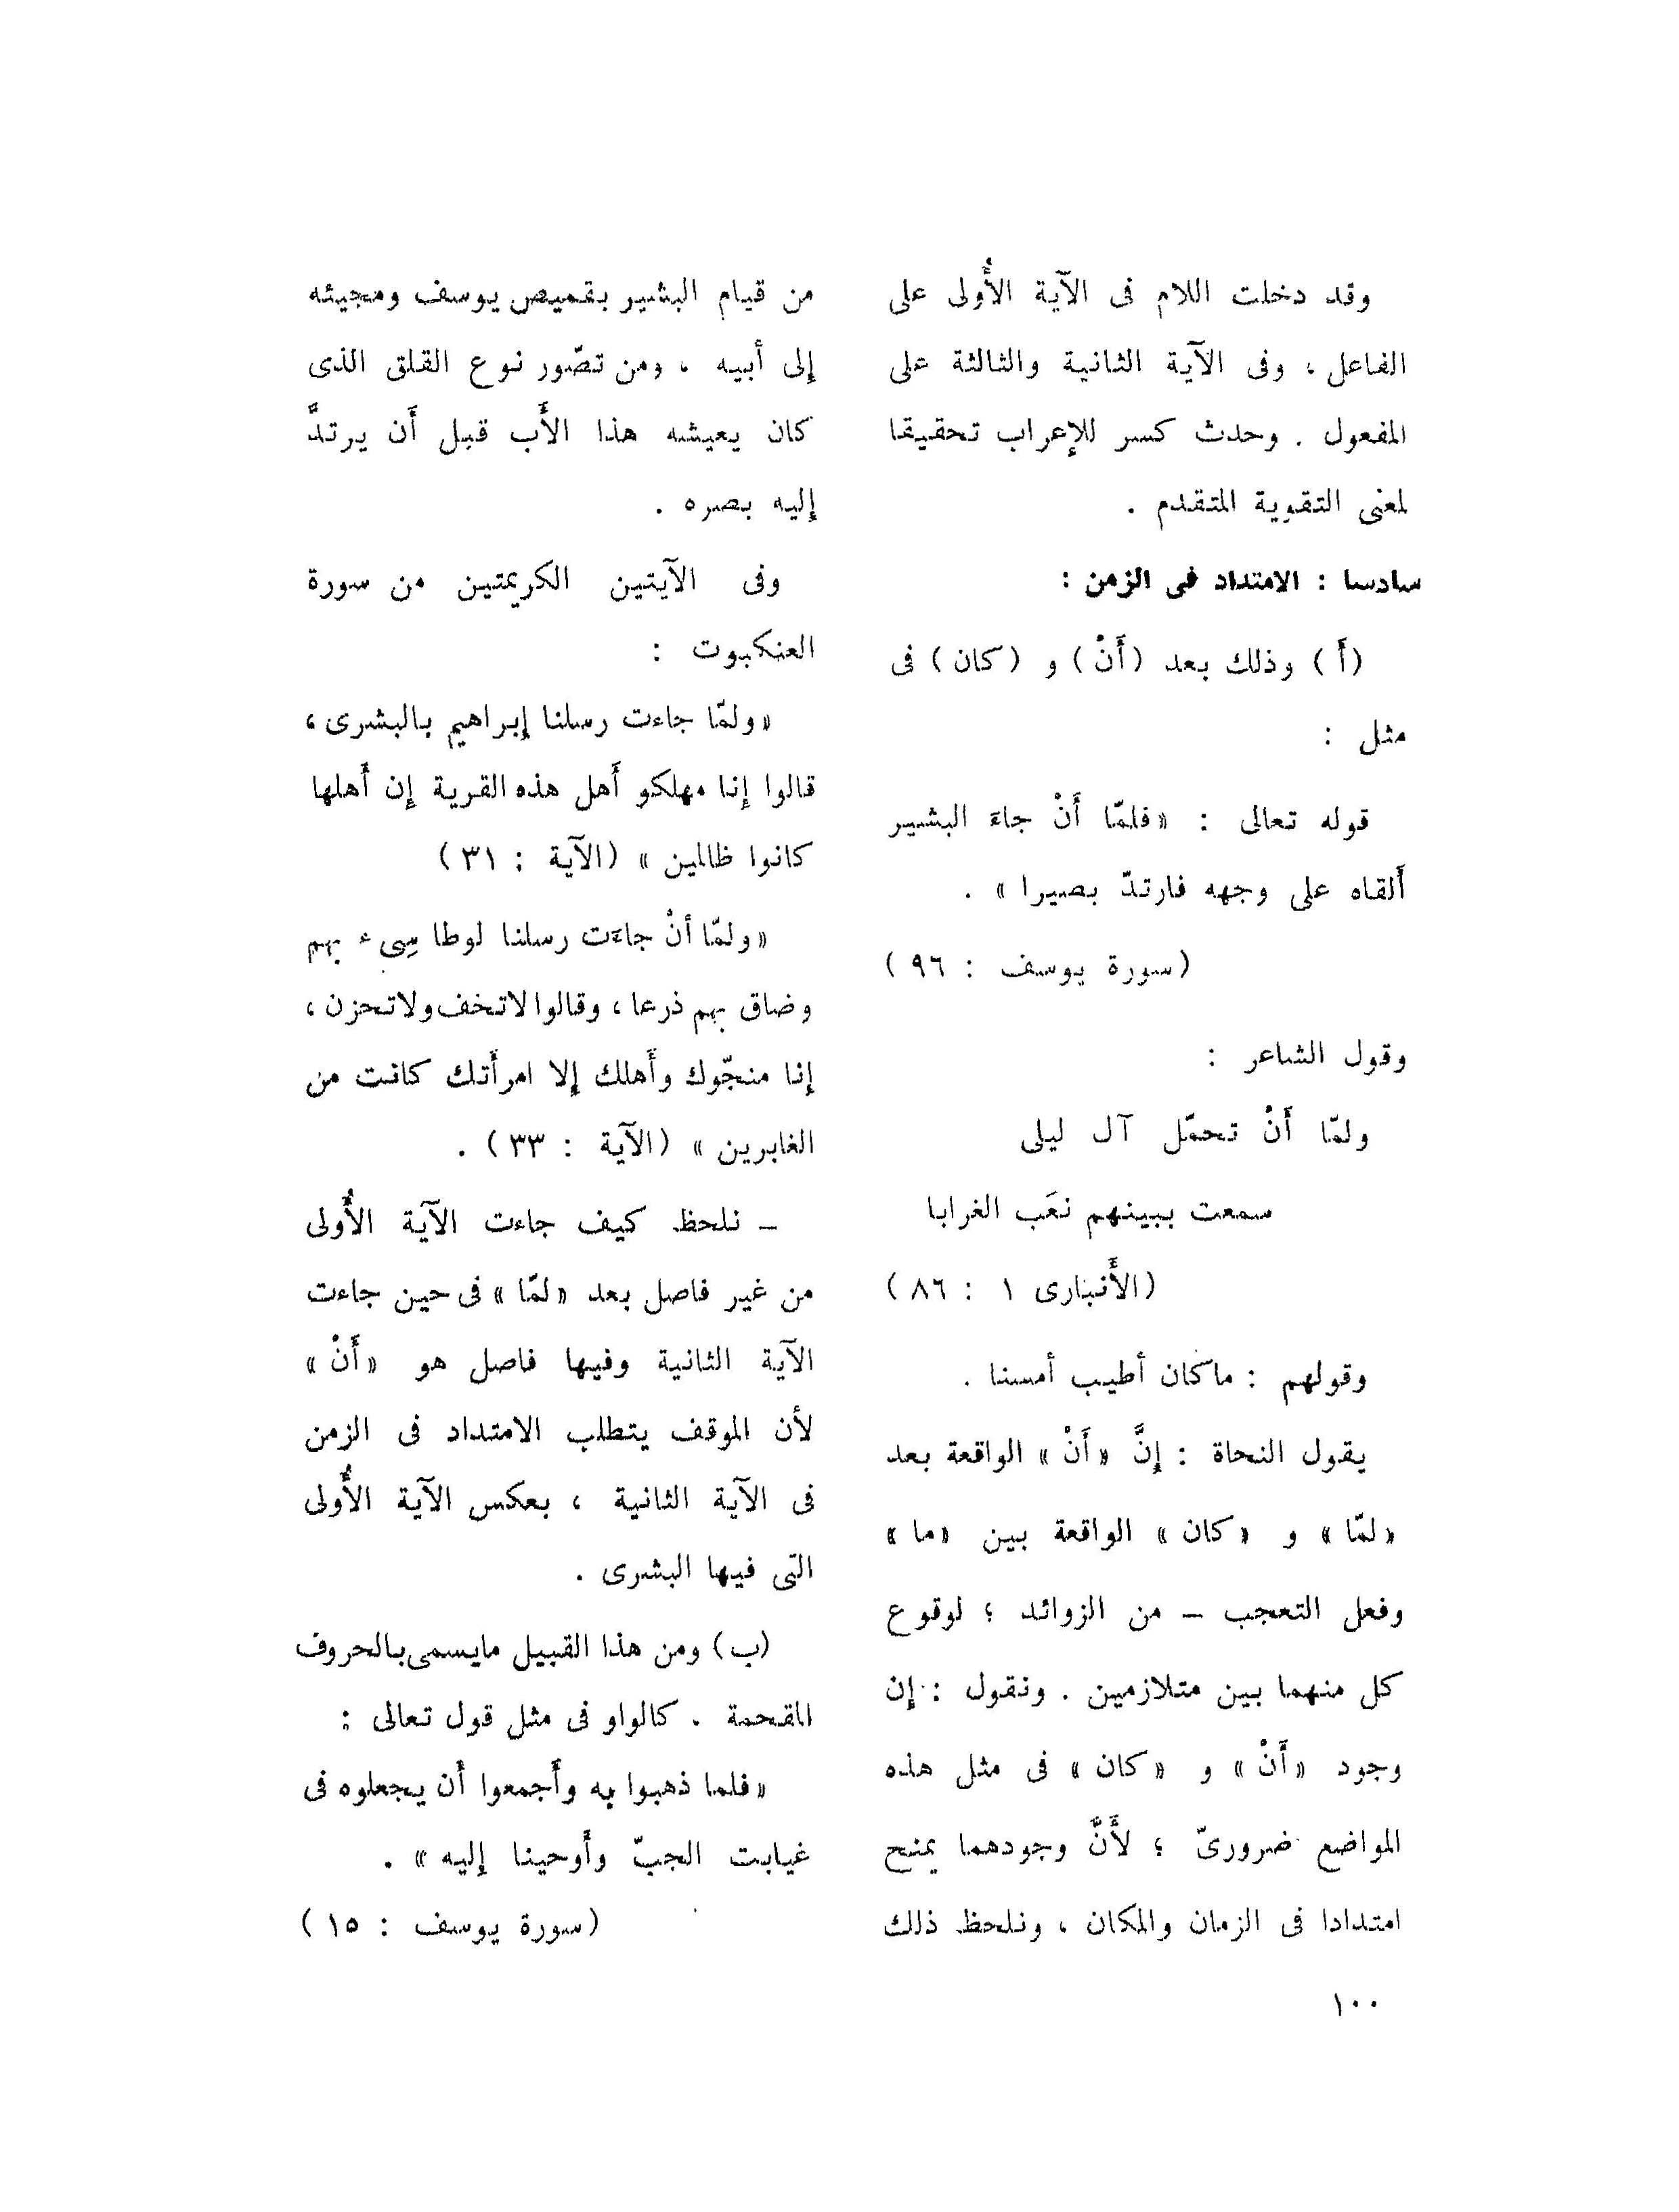 وقد دخلت اللام فى الآية الأُولى على
الفاعل ، وفى الآية الثانية والثالثة على
المفعول . وحدث كسر للإعراب تحقيقا
لمعنى التقوية المتقدم .
سادسا : الامتداد فى الزمن :
(أَ) وذلك بعد (أَنْ) و (كان) فى
مثل :
قوله تعالى : «فلمّا أَنْ جاءَ البشير
أَلقاه على وجهه فارتدّ بصيرا» .
(سورة يوسف : ٩٦)
وقول الشاعر :
ولمّا أَنْ تحمّل آل ليلى
سمعت ببينهم نعَب الغرابا
(الأَنبارى ١ : ٨٦)
وقولهم : ماكان أطيب أمسنا .
يقول النحاة : إِنَّ «أَنْ» الواقعة بعد
«لمّا» و «كان» الواقعة بين «ما»
وفعل التعجب – من الزوائد ؛ لوقوع
كل منهما بين متلازمين . ونقول : إن
وجود «أَنْ» و «كان» فى مثل هذه
المواضع ضرورىّ ؛ لأَنَّ وجودهما يمنح
امتدادا فى الزمان والمكان ، ونلحظ ذلك
من قيام البشير بقميص يوسف ومجيئه
إلى أبيه ، ومن تصّور نوع القلق الذى
كان يعيشه هذا الأَب قبل أَن يرتدَّ
إليه بصره .
وفى الآيتين الكريمتين من سورة
العنكبوت :
«ولمّا جاءت رسلنا إبراهيم بالبشرى ،
قالوا إنا مهلكو أَهل هذه القرية إن أَهلها
كانوا ظالمين» (الآية : ٣١)
«ولمّا أنْ جاءَت رسلنا لوطا سِىء بهم
وضاق بهم ذرعا ، وقالوا لاتخف ولاتحزن ،
إنا منجّوك وأَهلك إلا امرأَتك كانت من
الغابرين» (الآية : ٣٣) .
– نلحظ كيف جاءت الآية الأُولى
من غير فاصل بعد «لمّا» فى حين جاءت
الآية الثانية وفيها فاصل هو «أَنْ»
لأن الموقف يتطلب الامتداد فى الزمن
فى الآية الثانية ، بعكس الآية الأُولى
التى فيها البشرى .
(ب) ومن هذا القبيل مايسمى بالحروف
المقحمة . كالواو فى مثل قول تعالى :
«فلما ذهبوا به وأَجمعوا أَن يجعلوه فى
غيابت الجبّ وأَوحينا إليه» .
(سورة يوسف : ١٥)
١٠٠